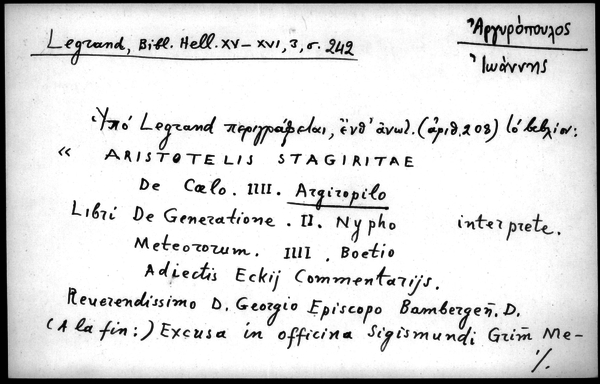 Legrand, Bibl. Hell. XV–XVI, 3, σ. 242
Ἀργυρόπουλος
Ἰωάννης
Ὑπό Legrand περιγράφεται, ἔνθ' ἀνωτ. (ἀριθ. 208) τό βιβλίον:
“ ARISTOTELIS STAGIRITAE
De Cœlo. IIII. Argiropilo
Libri De Generatione. II. Nypho interprete.
Meteororum. IIII. Boetio
Adiectis Eckij Commentarijs.
Reuerendissimo D. Georgio Episcopo Bambergeñ. D.
(A la fin:) Excusa in officina Sigismundi Grim̃ Me-
·/.